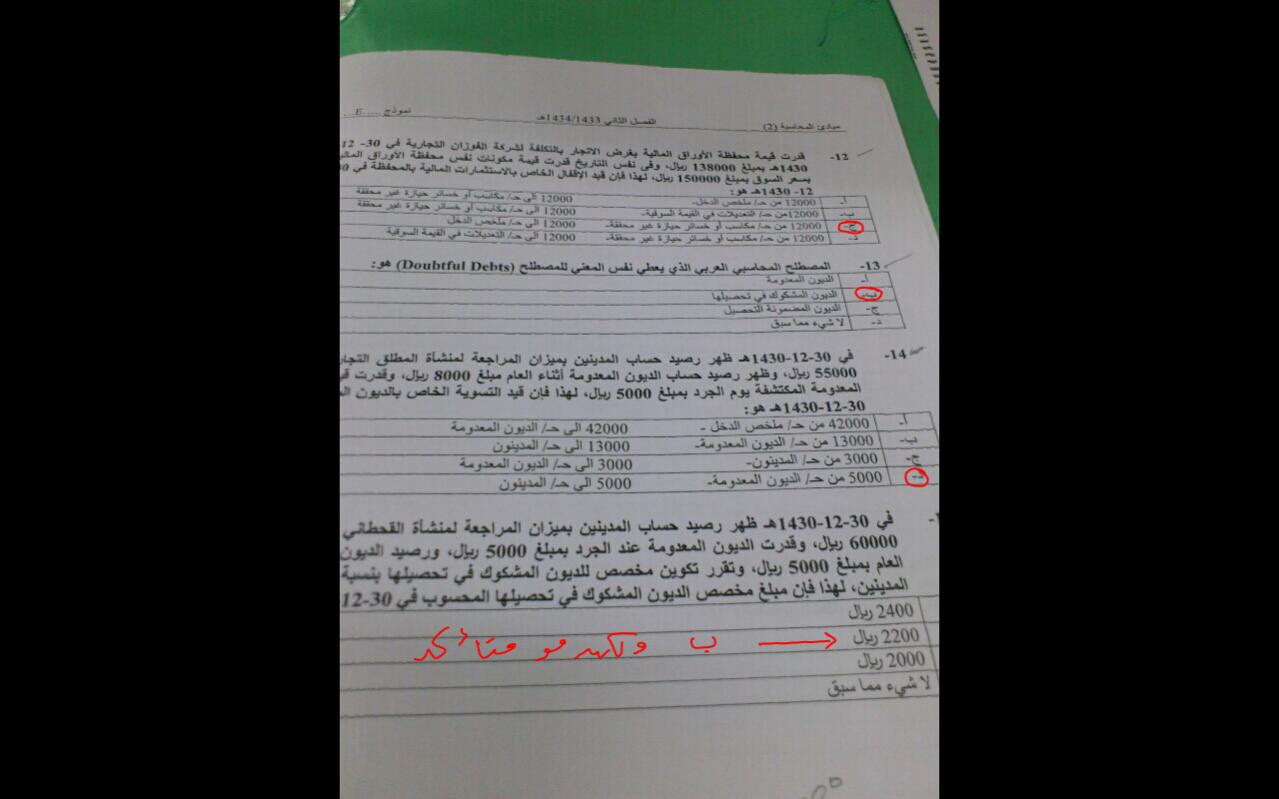 مبادئ المحاسبة (2) الفصل الثاني 1434/1433هـ نموذج .....E...
12- قدرت قيمة محفظة الأوراق المالية بغرض الاتجار بالتكلفة لشركة الفوزان التجارية في 30- 12
1430هـ بمبلغ 138000 ريال، وفي نفس التاريخ قدرت قيمة مكونات نفس محفظة الأوراق المالي
بسعر السوق بمبلغ 150000 ريال، لهذا فإن قيد الإقفال الخاص بالاستثمارات المالية بالمحفظة في
12- 1430هـ هو:
أ- 12000 من حـ/ ملخص الدخل- 12000 الى حـ/ مكاسب أو خسائر حيازة غير محققة
ب- 12000من حـ/ التعديلات في القيمة السوقية- 12000 الى حـ/ مكاسب أو خسائر حيازة غير محققة
ج- 12000 من حـ/ مكاسب أو خسائر حيازة غير محققة- 12000 الى حـ/ ملخص الدخل
د- 12000 من حـ/ مكاسب أو خسائر حيازة غير محققة- 12000 الى حـ/ التعديلات في القيمة السوقية
13- المصطلح المحاسبي العربي الذي يعطي نفس المعني للمصطلح (Doubtful Debts) هو:
أ- الديون المعدومة
ب- الديون المشكوك في تحصيلها
ج- الديون المضمونة التحصيل
د- لا شيء مما سبق
14- في 30-12-1430هـ ظهر رصيد حساب المدينين بميزان المراجعة لمنشأة المطلق التجار
55000 ريال، وظهر رصيد حساب الديون المعدومة أثناء العام مبلغ 8000 ريال، وقدرت
المعدومة المكتشفة يوم الجرد بمبلغ 5000 ريال، لهذا فإن قيد التسوية الخاص بالديون
30-12-1430هـ هو:
أ- 42000 من حـ/ ملخص الدخل - 42000 الى حـ/ الديون المعدومة
ب- 13000 من حـ/ الديون المعدومة- 13000 الى حـ/ المدينون
ج- 3000 من حـ/ المدينون- 3000 الى حـ/ الديون المعدومة
د- 5000 من حـ/ الديون المعدومة- 5000 الى حـ/ المدينون
في 30-12-1430هـ ظهر رصيد حساب المدينين بميزان المراجعة لمنشأة القحطاني
60000 ريال، وقدرت الديون المعدومة عند الجرد بمبلغ 5000 ريال، ورصيد الديون
العام بمبلغ 5000 ريال، وتقرر تكوين مخصص للديون المشكوك في تحصيلها بنسبة
المدينين، لهذا فإن مبلغ مخصص الديون المشكوك في تحصيلها المحسوب في 30-12
2400 ريال
2200 ريال ب ولكن مو متأكد
2000 ريال
لا شيء مما سبق